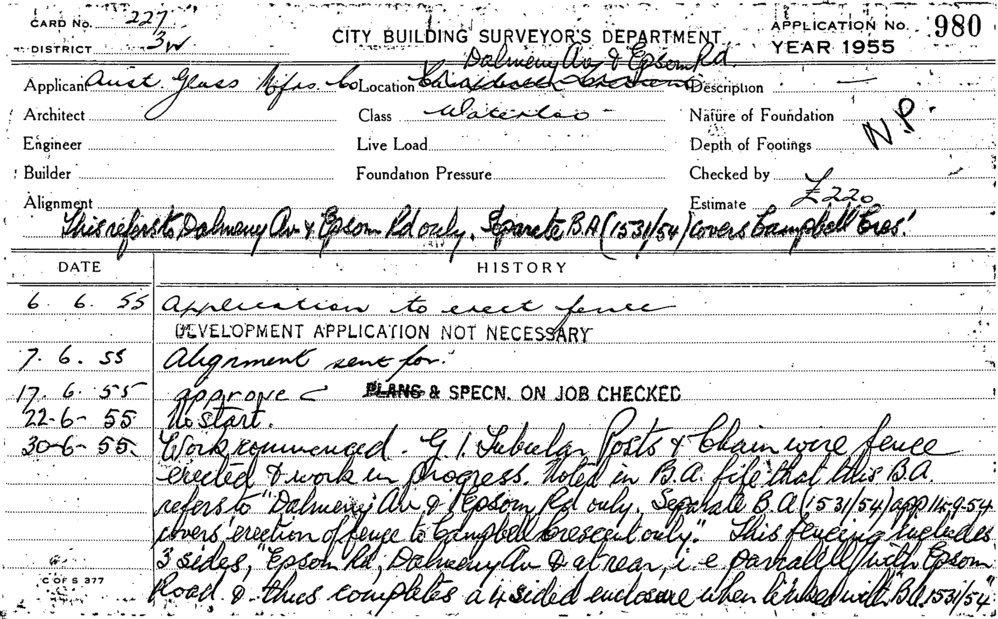 CARD No. 227
DISTRICT 3W
CITY BUILDING SURVEYOR'S DEPARTMENT
APPLICATION No. 980
YEAR 1955
Dalmeny Av & Epsom Rd.
Applicant Aust Glass Mfrs. Co Location Description —
Architect Class Waterloo Nature of Foundation N.P.
Engineer Live Load Depth of Footings
Builder Foundation Pressure Checked by
Alignment Estimate £220
This refers to Dalmeny Av & Epsom Rd only. Separate B.A (1531/54) covers Campbell Cres.
DATE HISTORY
6. 6. 55 Application to erect fence
DEVELOPMENT APPLICATION NOT NECESSARY
7. 6. 55 Alignment sent for.
17. 6. 55 approve PLANS & SPECN. ON JOB CHECKED
22-6-55 No start.
30-6-55. Work commenced. G.I. Tubular Posts & Chain wire fence
erected & work in progress. Noted in B.A. file that this B.A.
refers to "Dalmeny Av. & Epsom Rd only. Separate B.A (1531/54) app 14.9.54
covers erection of fence to Campbell Crescent only." This fencing includes
3 sides, "Epsom Rd, Dalmeny Av & at rear, i.e parralell with Epsom
Road & thus completes a 4 sided enclosure when linked with B.A. 1531/54
C OF S 377